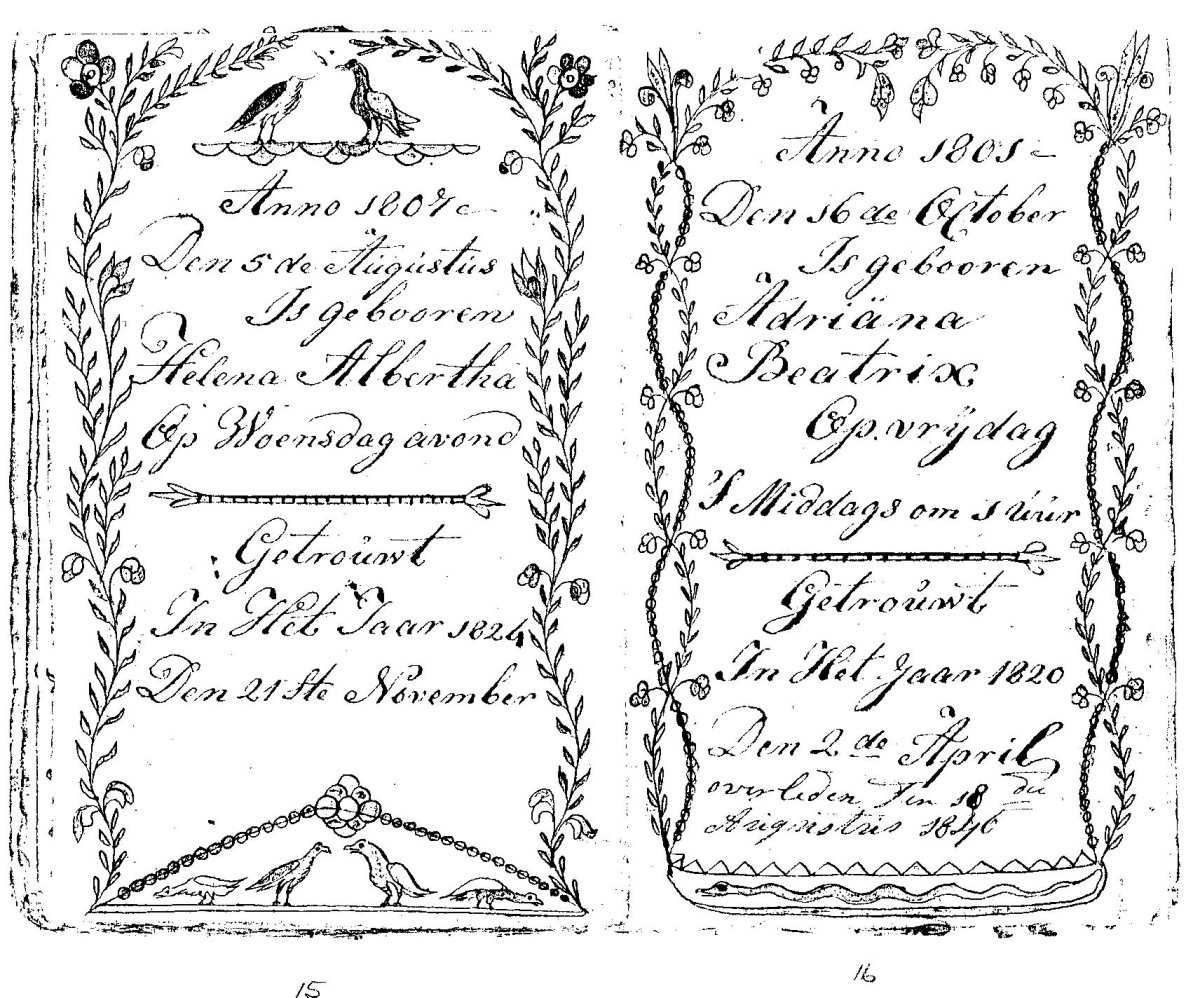 Anno 1807
Den 5 de Augustus
Is gebooren
Helena Albertha
Op Woensdag avond
Getrouwt
In Het Jaar 1824
Den 21 ste November
15
Anno 1801
Den 16 de October
Is gebooren
Adriäna
Beatrix
Op vrÿdag
'S Middags om 1 uur
Getrouwt
In Het Jaar 1820
Den 2 de April
overleden Den 18 de
Augustus 1846
16